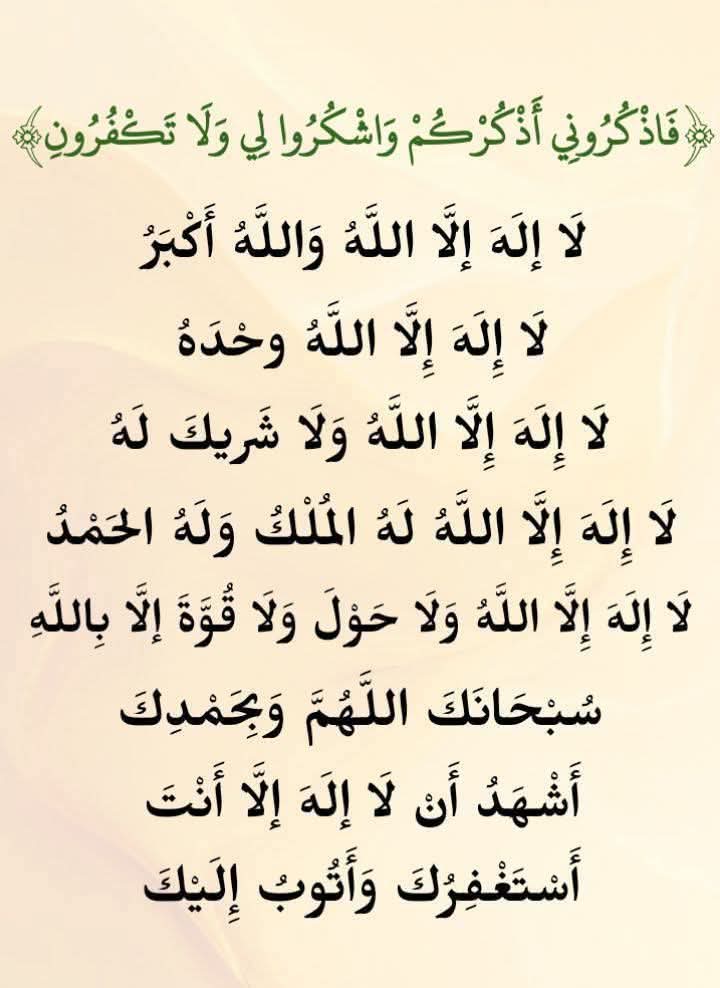 ﴿فَاذْكُرُونِي أَذْكُرْكُمْ وَاشْكُرُوا لِي وَلَا تَكْفُرُونِ﴾
لَا إلَهَ إلَّا اللَّهُ وَاللَّهُ أَكْبَرُ
لَا إِلَهَ إِلَّا اللَّهُ وحْدَهُ
لَا إِلَهَ إِلَّا اللَّهُ وَلَا شَرِيكَ لَهُ
لَا إِلَهَ إِلَّا اللَّهُ لَهُ المُلْكُ وَلَهُ الحَمْدُ
لَا إِلَهَ إِلَّا اللَّهُ وَلَا حَوْلَ وَلَا قُوَّةَ إلَّا بِاللَّهِ
سُبْحَانَكَ اللَّهُمَّ وَبِحَمْدِكَ
أَشْهَدُ أَنْ لَا إلَهَ إلَّا أَنْتَ
أَسْتَغْفِرُكَ وَأَتُوبُ إِلَيْكَ